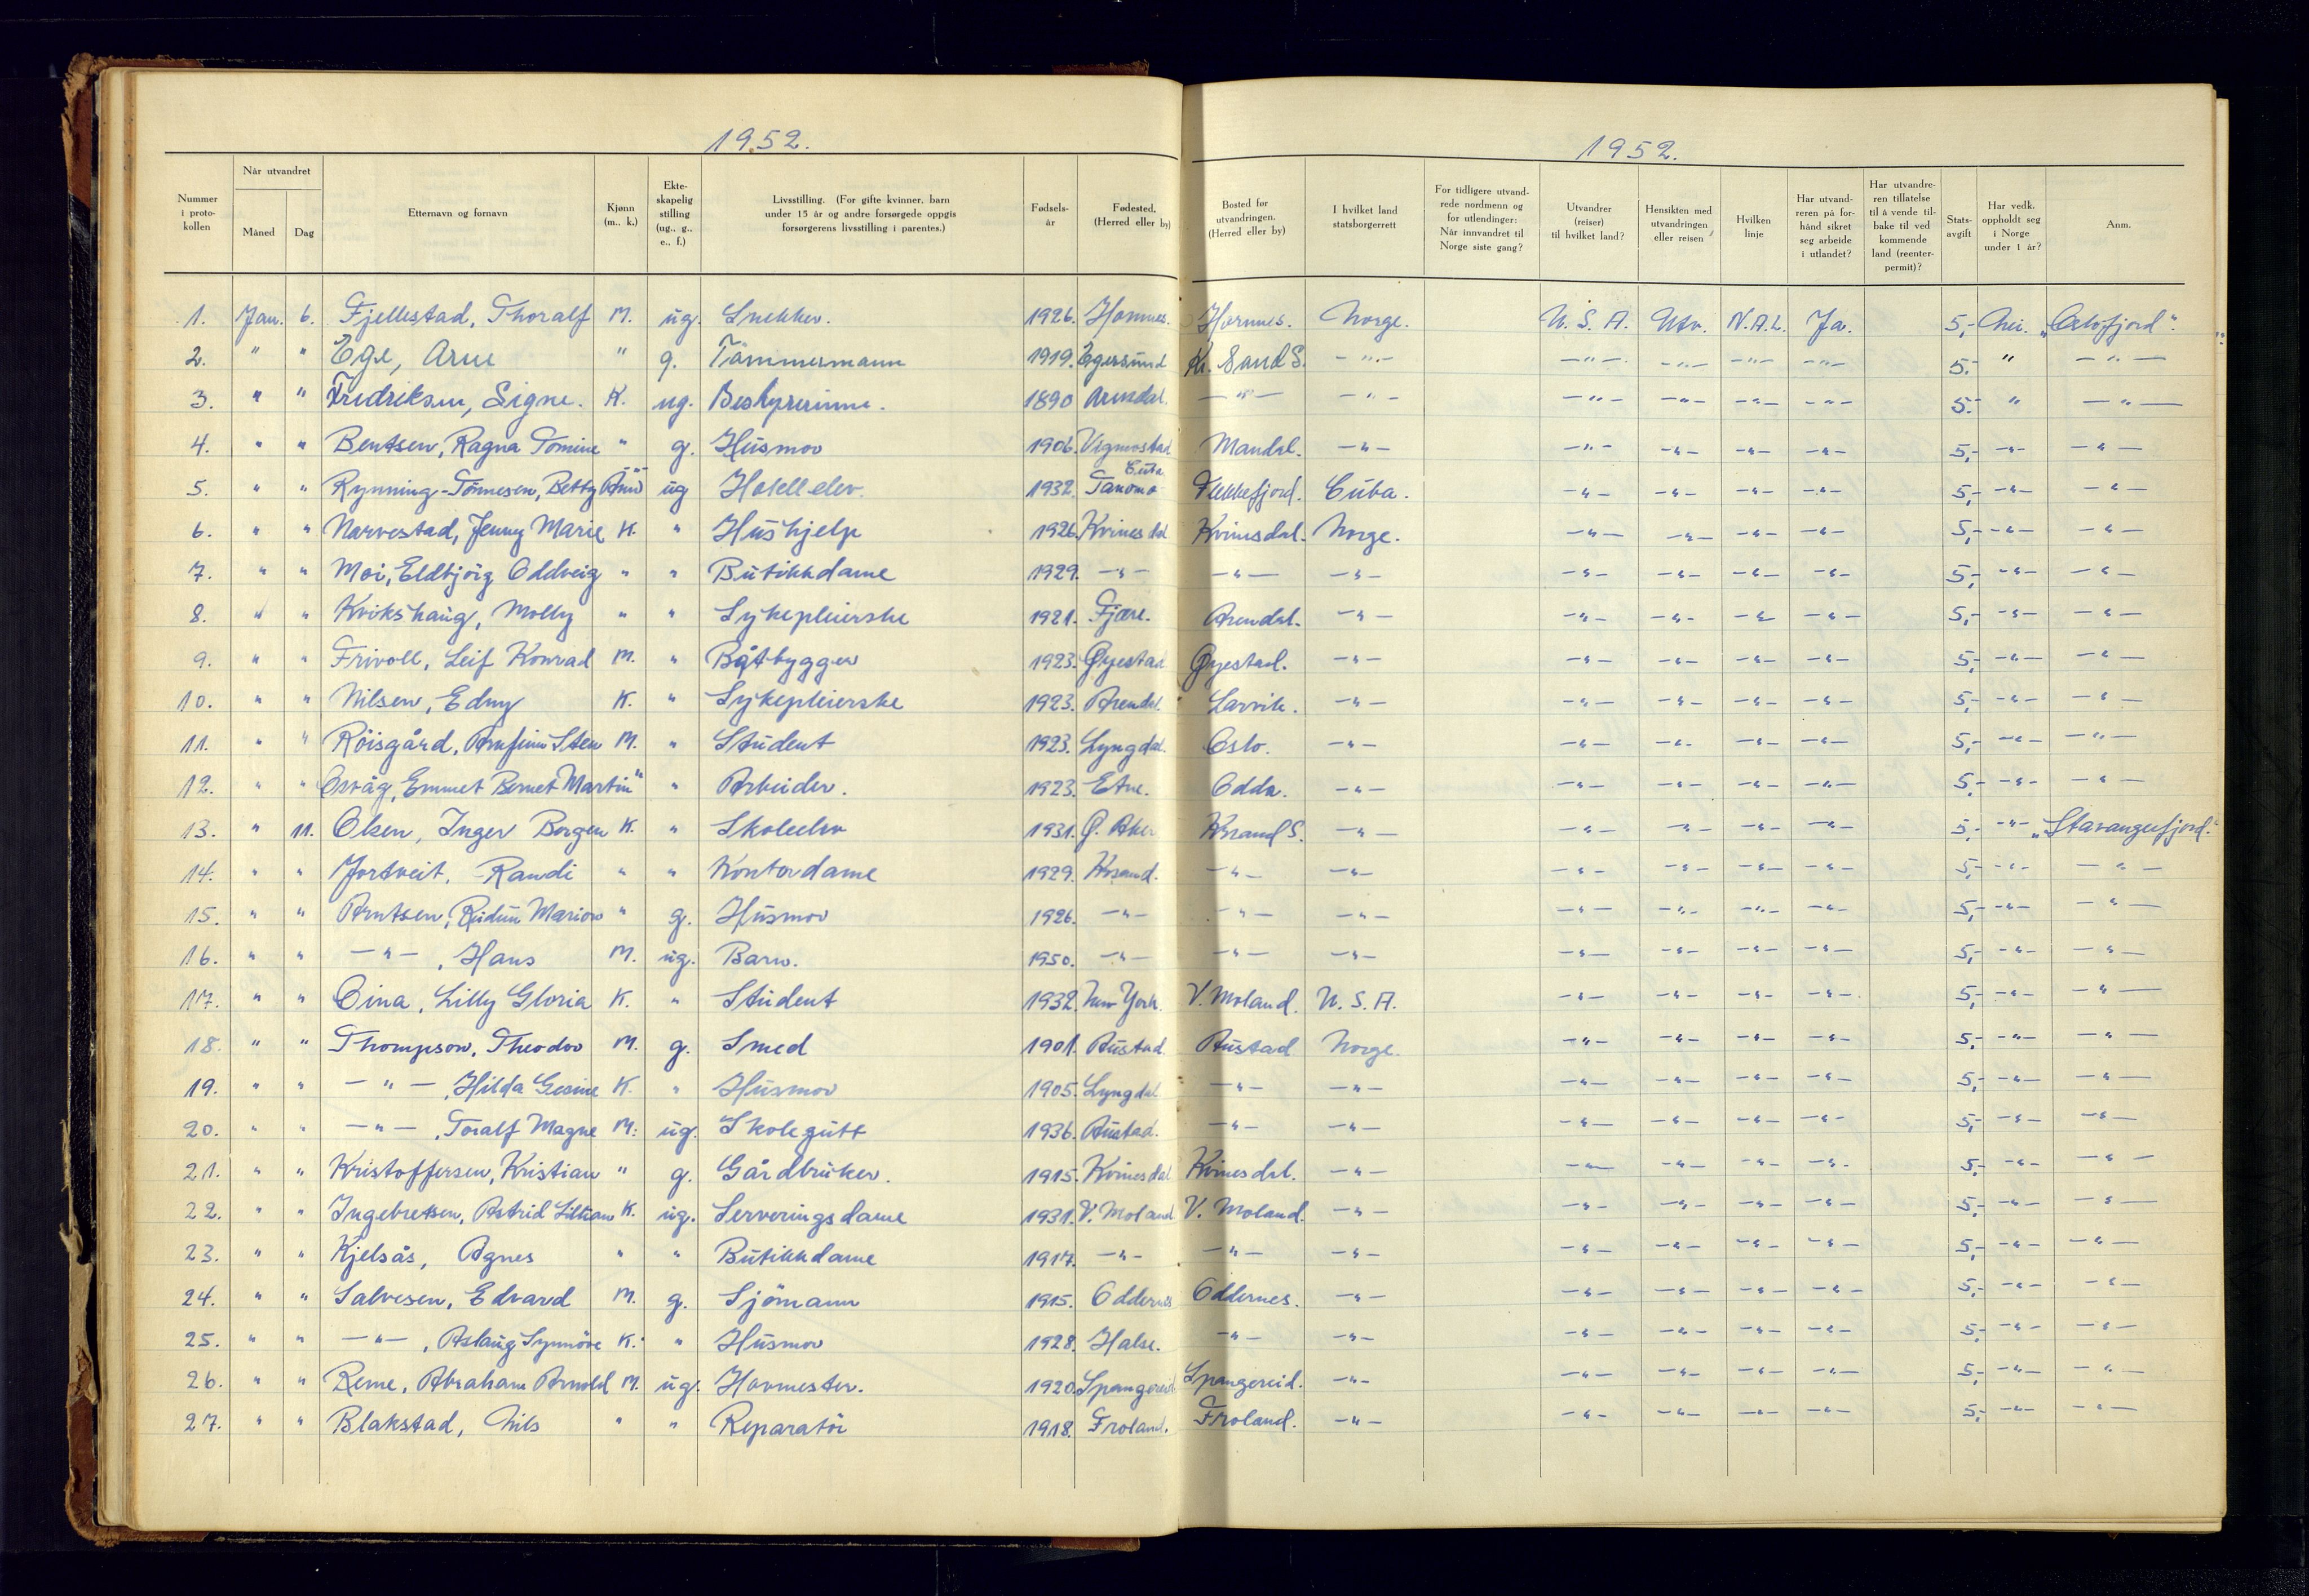 1952.
1952.
Nummer i proto- kollen | Når utvandret Måned Dag | Etternavn og fornavn | Kjønn (m., k.) | Ekte- skapelig stilling (ug., g., e., f.) | Livsstilling. (For gifte kvinner, barn under 15 år og andre forsørgede oppgis forsørgerens livsstilling i parentes.) | Fødsels- år | Fødested, (Herred eller by) | Bosted før utvandringen. (Herred eller by) | I hvilket land statsborgerrett | For tidligere utvand- rede nordmenn og for utlendinger: Når innvandret til Norge siste gang? | Utvandrer (reiser) til hvilket land? | Hensikten med utvandringen eller reisen | Hvilken linje | Har utvand- reren på for- hånd sikret seg arbeide i utlandet? | Har utvandre- ren tillatelse til å vende til- bake til ved kommende land (reenter- permit)? | Stats- avgift | Har vedk. oppholdt seg i Norge under 1 år? | Anm.
1. Jan. 6. Fjellestad, Thoralf M. ug. Snekker. 1926. Hornnes. Hornnes. Norge. U.S.A. Utv. N.A.L. Ja. 5,- Nei. "Oslofjord".
2. " " Ege, Arne " g. Tömmermann 1919. Egersund Kr. Sand S. -"- -"- -"- -"- -"- 5.- " -"-
3. " " Fredriksen, Signe. K. ug. Bestyrerinne. 1890 Arendal. -"- -"- -"- -"- -"- -"- 5.- " -"-
4. " " Bentsen, Ragna Tomine " g. Husmor 1906. Vigmostad Mandal. -"- -"- -"- -"- -"- 5,- -"- -"-
5. " " Rynning-Tönnesen, Betty " ug Hotellelev. 1932. Tanomo Cuba Flekkefjord. Cuba. -"- -"- -"- -"- 5,- -"- -"-
6. " " Narvestad, Jenny Marie K. " Hushjelp 1926. Kvinesdal Kvinesdal. Norge. -"- -"- -"- -"- 5,- -"- -"-
7. " " Moi, Eldbjörg Oddveig " " Butikkdame 1929. -"- -"- -"- -"- -"- -"- -"- 5,- -"- -"-
8. " " Kvikshaug, Molly " " Sykepleierske 1921. Fjære. Arendal. -"- -"- -"- -"- -"- 5,- -"- -"-
9. " " Frivoll, Leif Konrad M. " Båtbygger 1923. Øyestad Øyestad. -"- -"- -"- -"- -"- 5,- -"- -"-
10. " " Nilsen, Edny K. " Sykepleierske 1923. Arendal. Larvik. -"- -"- -"- -"- -"- 5,- -"- -"-
11. " " Röisgård, Arnfinn Sten M. " Student 1923. Lyngdal. Oslo. -"- -"- -"- -"- -"- 5,- -"- -"-
12. " " Osvåg, Emmet Bernet Martin " " Arbeider. 1923. Etne. Odda. -"- -"- -"- -"- -"- 5,- -"- -"-
13. " 11. Olsen, Inger Borgen K. " Skoleelev 1931. Ø. Aker Krsand S. -"- -"- -"- -"- -"- 5,- -"- "Stavangerfjord."
14. " " Jortveit, Randi " " Kontordame 1929. Krsand. -"- -"- -"- -"- -"- -"- 5,- -"- -"-
15. " " Arntsen, Reidun Marion " g. Husmor 1926. -"- -"- -"- -"- -"- -"- -"- 5,- -"- -"-
16. " " -"-, Hans M. ug. Barn. 1950. -"- -"- -"- -"- -"- -"- -"- 5,- -"- -"-
17. " " Oina, Lilly Gloria K. " Student 1932. New York. V. Moland. U.S.A. -"- -"- -"- -"- 5,- -"- -"-
18. " " Thompson, Theodor M. g. Smed 1901. Austad Austad Norge. -"- -"- -"- -"- 5,- -"- -"-
19. " " -"-, Hilda Gesine K. " Husmor 1905. Lyngdal -"- -"- -"- -"- -"- -"- 5,- -"- -"-
20. " " -"-, Toralf Magne M. ug. Skolegutt 1936. Austad. -"- -"- -"- -"- -"- -"- 5,- -"- -"-
21. " " Kristoffersen, Kristian " g. Gårdbruker. 1915. Kvinesdal Kvinesdal. -"- -"- -"- -"- -"- 5,- -"- -"-
22. " " Ingebretsen, Astrid Lillian K. ug. Serveringsdame 1931. V. Moland V. Moland. -"- -"- -"- -"- -"- 5,- -"- -"-
23. " " Kjelsås, Agnes " " Butikkdame 1917. -"- -"- -"- -"- -"- -"- -"- 5,- -"- -"-
24. " " Salvesen, Edvard M. g. Sjömann 1915. Oddernes Oddernes. -"- -"- -"- -"- -"- 5,- -"- -"-
25. " " -"-, Aslaug Synnöve K. " Husmor 1928. Halse. -"- -"- -"- -"- -"- -"- 5,- -"- -"-
26. " " Reme, Abraham Arnold M. ug. Hovmester. 1920. Spangereid Spangereid. -"- -"- -"- -"- -"- 5,- -"- -"-
27. " " Blakstad, Nils " " Reparatör 1918. Froland. Froland. -"- -"- -"- -"- -"- 5,- -"- -"-